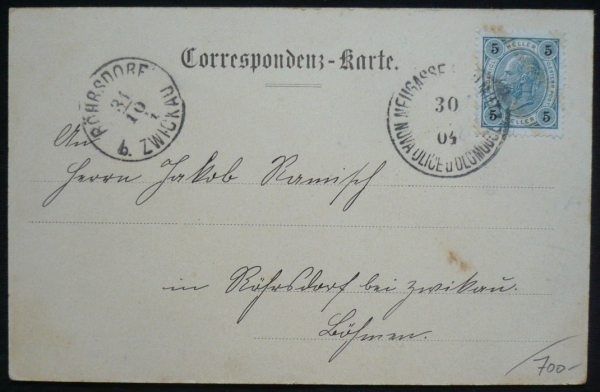 Correspondenz-Karte.
5 5
HELLER
5 5
RÖHRSDORF
31
10
b. ZWICKAU
NEUGASSE
30
04
NOVÁ ULICE u OLOMOUCE
An
Herrn Jakob Ramisch
in Röhrsdorf bei Zwikau.
Böhmen.
700-